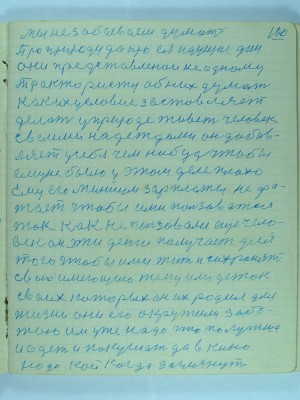 100
мы не забываем думать
про природу да про ея идущие дни
они представлены не одному
трактористу об них думать
каких условие заставляет
делат у природе живет человек
своеми надеждами он добав-
ляет у себя чем нибудь чтобы
ему не было у этом деле плохо
ему его жизни зарплаты не фа-
тает чтобы ими пользоватся
так как не пользовали еще чело-
век он эти денги получает для
того чтобы ими жит и сохранят
свою имеющию жену или деток
своих которых он их родил для
жизни они его окружиш забо-
тою им уже надо что получше
и одет и покушат да в кино
надо кой когда заглянут